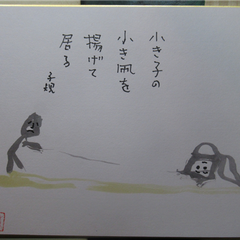 小き子の
小き凧を
揚げて
居る
子規